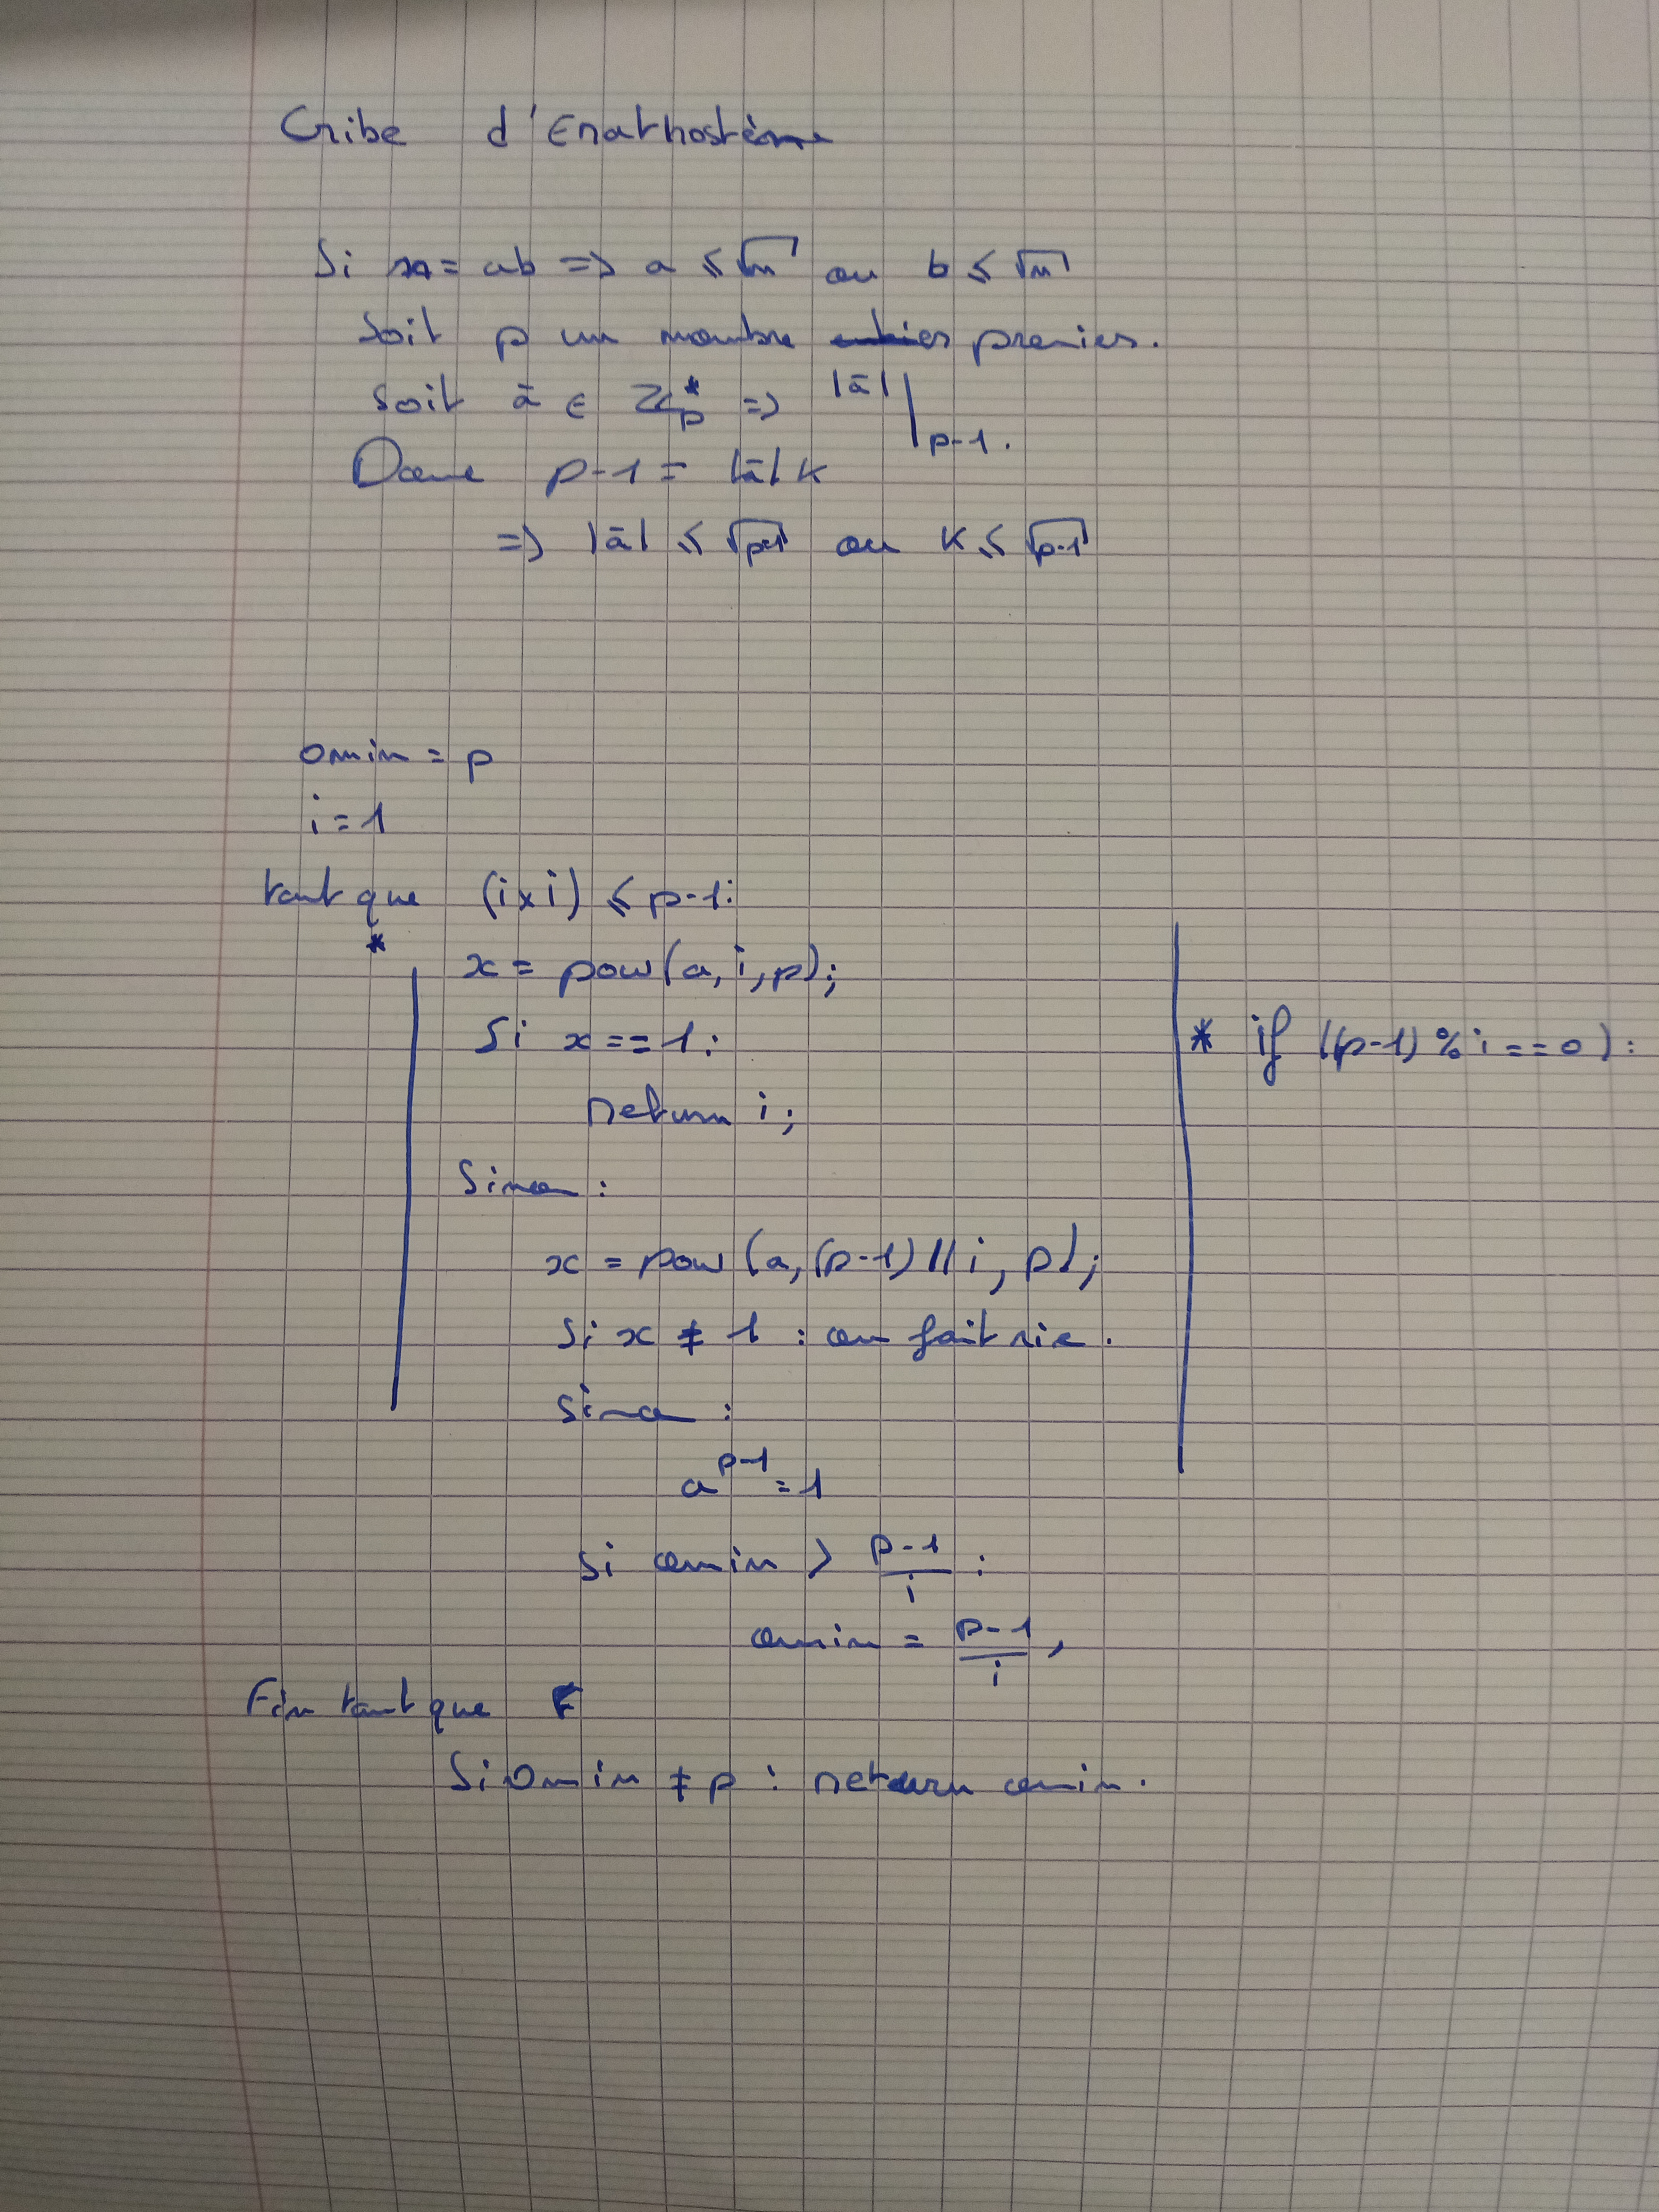 Cribe d'Erathostène
Si n = ab => a ≤ √n ou b ≤ √n
Soit p un nombre premier.
Soit ā ∈ ℤp* => |ā| | p-1.
Donc p-1 = |ā| k
=> |ā| ≤ √p-1 ou k ≤ √p-1
omin = p
i = 1
tant que (i x i) ≤ p-1:
*
x = pow(a, i, p);
Si x == 1:
return i;
* if ((p-1) % i == 0):
Sinon :
x = pow (a, (p-1) // i, p);
Si x ≠ 1 : on fait rie.
Sinon :
a^p-1 = 1
Si omin > p-1/i :
omin = p-1/i ;
Fin tant que
Si omin ≠ p : return omin.